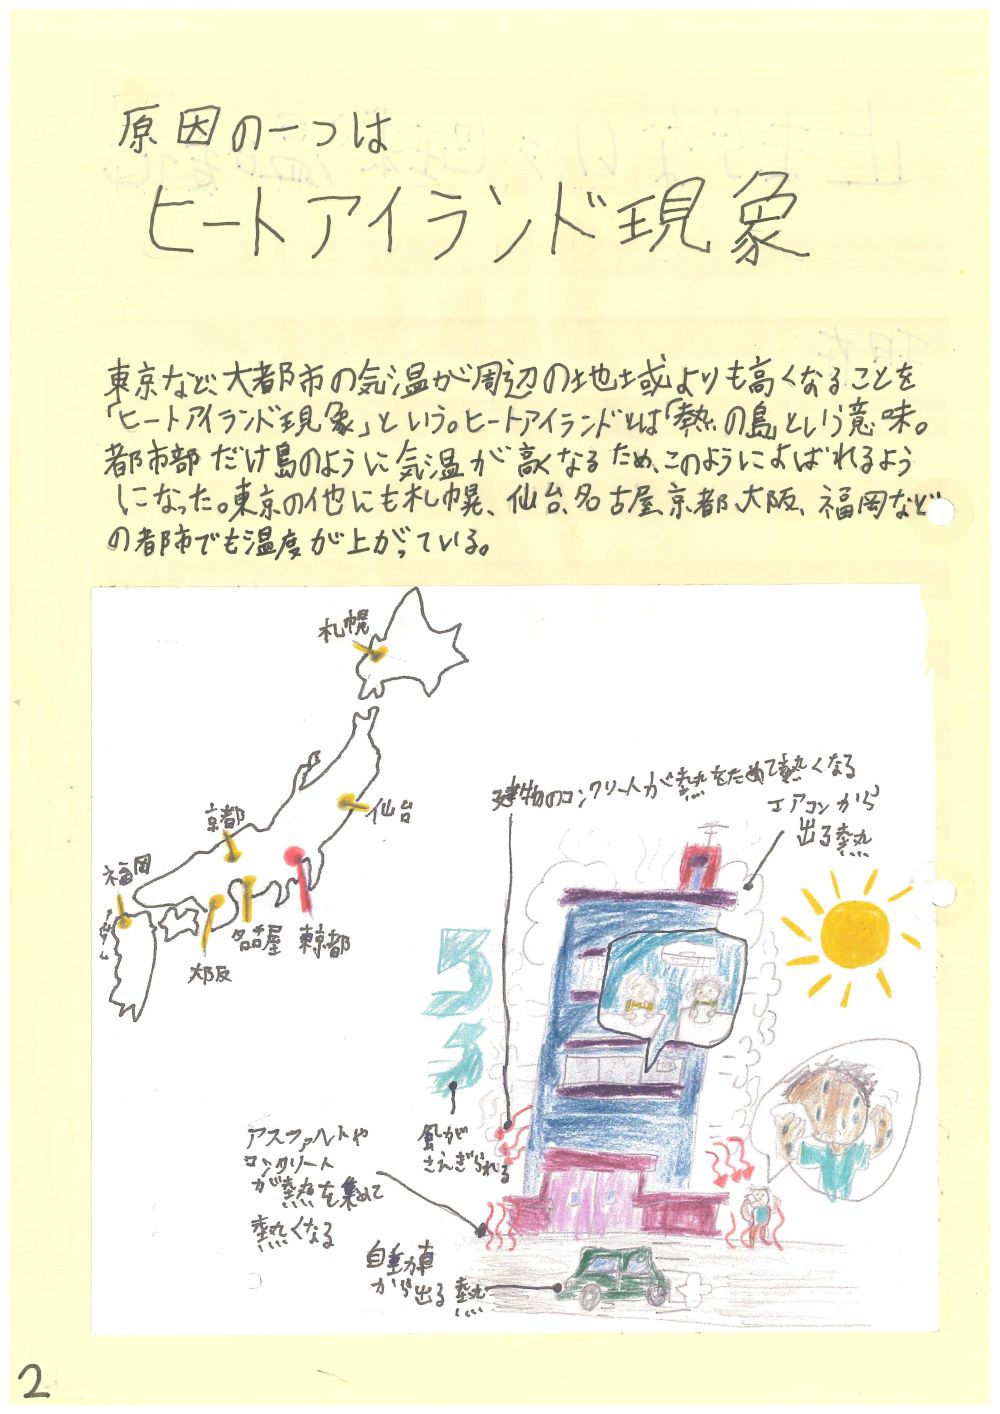 原因の一つは
ヒートアイランド現象
東京など、大都市の気温が周辺の地域よりも高くなることを
「ヒートアイランド現象」という。ヒートアイランドとは「熱の島」という意味。
都市部だけ島のように気温が高くなるため、このようによばれるよう
になった。東京の他にも札幌、仙台、名古屋、京都、大阪、福岡など
の都市でも温度が上がっている。
札幌
仙台
京都
福岡
名古屋
東京都
大阪
建物のコンクリートが熱をためて熱くなる
エアコンから
出る熱
風が
さえぎられる
アスファルトや
コンクリート
が熱を集めて
熱くなる
自動車
から出る熱
2